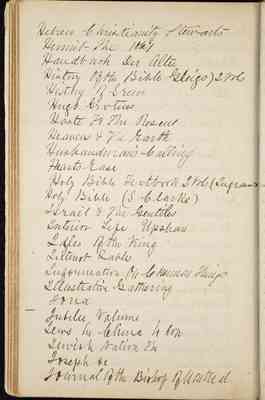 Hebrew Christianity Stewarts
Hermit The 1849
Handbuch Der Alte
History Of the Bible (Gleigs) 2 Vols
History Of Greece
Hugo Grotius
Haste To The Rescue
Heaven & The Earth
Husbandman's Calling
Hearts Ease
Holy Bible Textbook 2 Vols
Holy Bible (S Clarke)
Israel & The Gentiles
Interior Life Upham
Idylls Of the King
Information On Common Things
Illustrative Gathering
Iona
Jubilee Volume
Jews In China
Jewish Nation The
Joseph
Journal Of the Bishop Of Montreal